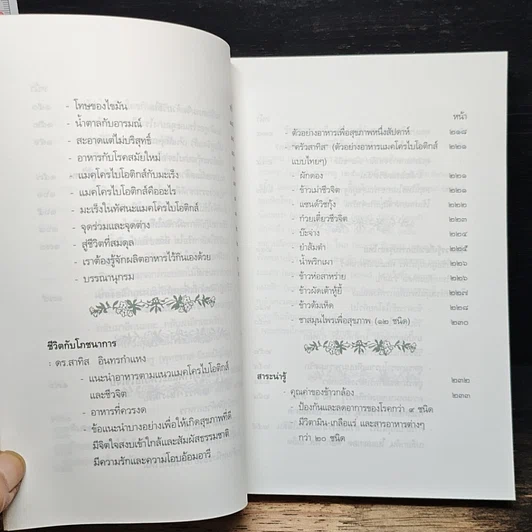 - โทษของไขมัน
- น้ำตาลกับอารมณ์
- สะอาดแต่ไม่บริสุทธิ์
- อาหารกับโรคสมัยใหม่
- แมคโครไบโอติกส์กับมะเร็ง
- แมคโครไบโอติกส์คืออะไร
- มะเร็งในทัศนะแมคโครไบโอติกส์
- จุดร่วมและจุดต่าง
- สู่ชีวิตที่สมดุล
- เราต้องรู้จักผลิตอาหารไว้กินเองด้วย
- บรรณานุกรม
ชีวิตกับโภชนาการ
: ดร.สาทิส อินทรกำแหง
- แนะนำอาหารตามแนวแมคโครไบโอติกส์
และชีวจิต
- อาหารที่ควรงด
- ข้อแนะนำบางอย่างเพื่อให้เกิดสุขภาพที่ดี
มีจิตใจสงบเข้าใกล้และสัมผัสธรรมชาติ
มีความรักและความโอบอ้อมอารี
หน้า
- ตัวอย่างอาหารเพื่อสุขภาพหนึ่งสัปดาห์ ๒๑๘
- "ครัวสาทิส" (ตัวอย่างอาหารแมคโครไบโอติกส์ ๒๒๑
แบบไทยๆ)
- ผักดอง ๒๒๑
- ข้าวเม่าชีวจิต ๒๒๑
- แซนด์วิชกุ้ง ๒๒๒
- ก๋วยเตี๋ยวชีวจิต ๒๒๓
- บ๊ะจ่าง ๒๒๔
- ยำส้มตำ ๒๒๕
- น้ำพริกเผา ๒๒๖
- ข้าวห่อสาหร่าย ๒๒๖
- ข้าวผัดเต้าหู้ยี้ ๒๒๗
- ข้าวต้มเห็ด ๒๒๘
- ชาสมุนไพรเพื่อสุขภาพ (๑๒ ชนิด) ๒๓๐
สาระน่ารู้ ๒๓๒
- คุณค่าของข้าวกล้อง ๒๓๓
- ป้องกันและลดอาการของโรคกว่า ๙ ชนิด
มีวิตามิน-เกลือแร่ และสารอาหารต่างๆ
กว่า ๒๐ ชนิด